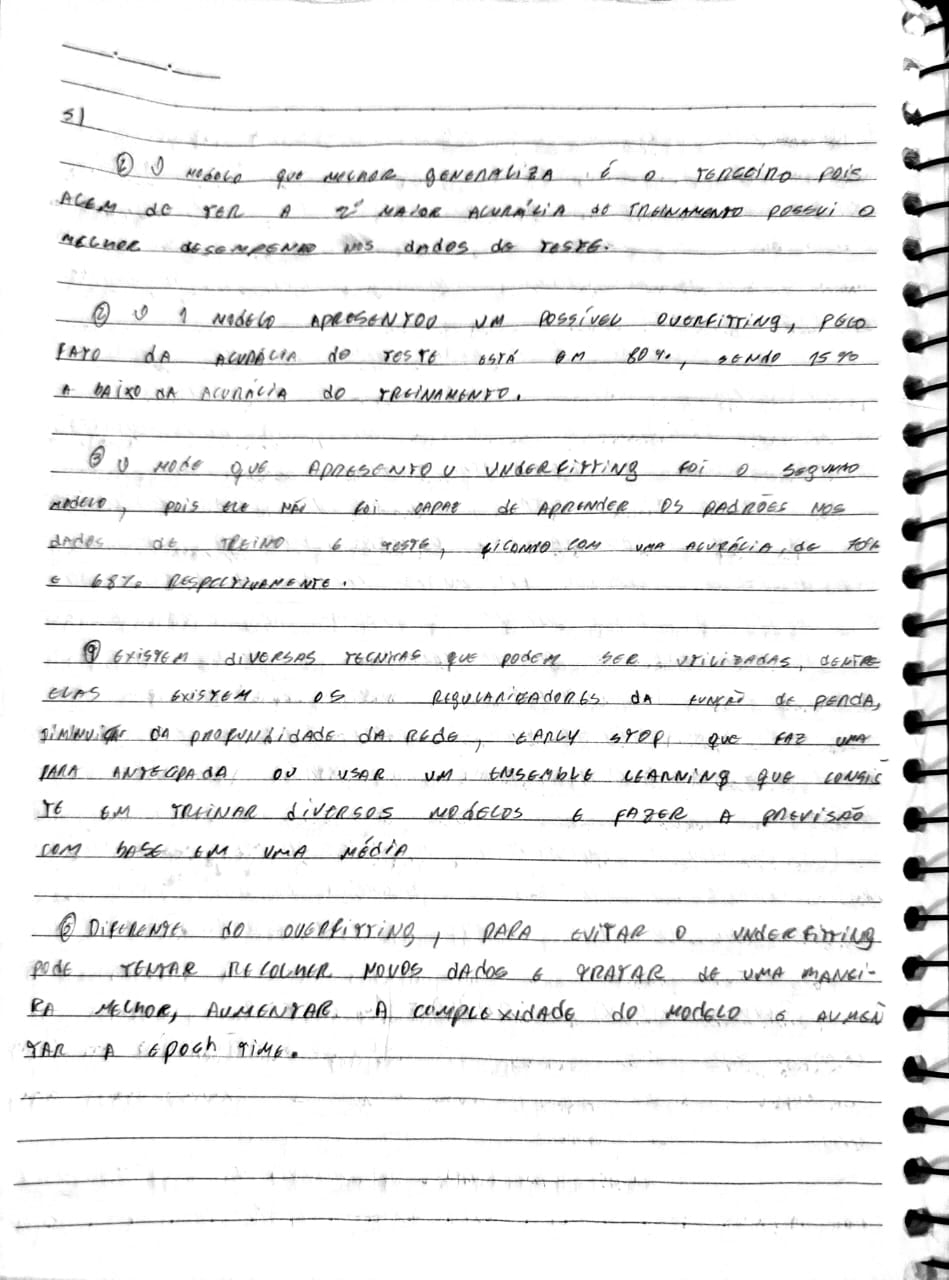 5)
① O MODELO QUE MELHOR GENERALIZA É O TERCEIRO POIS
ALEM DE TER A 2º MAIOR ACURÁCIA DO TREINAMENTO POSSUI O
MELHOR DESEMPENHO NOS DADOS DE TESTE.
② O 1 MODELO APRESENTOU UM POSSÍVEL OVERFITTING, PELO
FATO DA ACURÁCIA DO TESTE ESTÁ EM 80%, SENDO 15%
A BAIXO DA ACURÁCIA DO TREINAMENTO.
③ O MODE QUE APRESENTOU UNDERFITTING FOI O SEGUNDO
MODELO, POIS ELE NÃO FOI CAPAZ DE APRENDER OS PADRÕES NOS
DADOS DE TREINO E TESTE, FICANTO COM UMA ACURÁCIA, DE 70%
E 68% RESPECTIVAMENTE.
④ EXISTEM DIVERSAS TECNICAS QUE PODEM SER UTILIZADAS, DENTRE
ELAS EXISTEM OS REGULARIZADORES DA FUNÇÃO DE PERDA,
DIMINUIR DA PROFUNDIDADE DA REDE, EARLY STOP, QUE FAZ UMA
PARA ANTECPADA OU USAR UM ENSEMBLE LEARNING QUE CONSIS
TE EM TREINAR DIVERSOS MODELOS E FAZER A PREVISÃO
COM BASE EM UMA MÉDIA
⑤ DIFERENTE DO OVERFITTING, PARA EVITAR O UNDERFITTING
PODE TENTAR RECOLHER NOVOS DADOS E TRATAR DE UMA MANEI-
RA MELHOR, AUMENTAR A COMPLEXIDADE DO MODELO E AUMEN
TAR A EPOCH TIME.